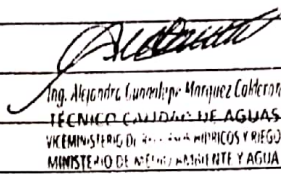 Ing. Alejandra Guadalupe Marquez Calderon
TÉCNICO CALIDAD DE AGUAS
VICEMINISTERIO DE HIDRICOS Y RIEGO
MINISTERIO DE MEDIO AMBIENTE Y AGUA